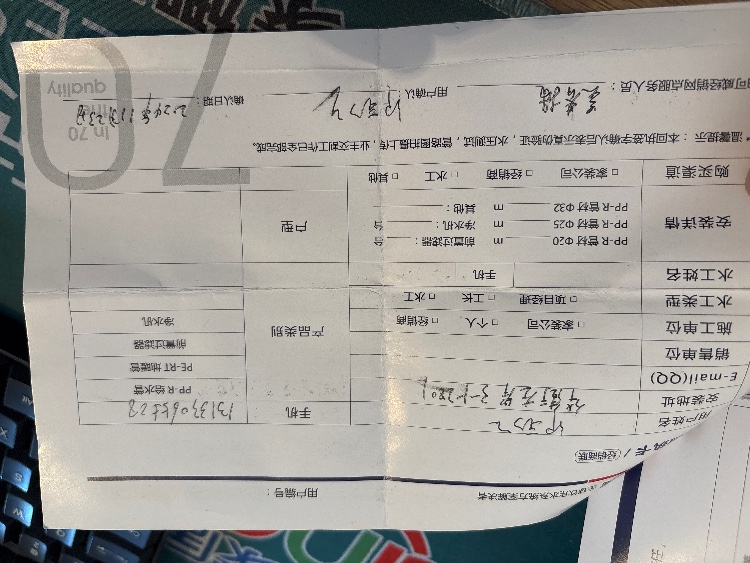 全球饮用水系统方案解决者
用户编号：
卡 / 经销商联
用户姓名
手机
安装地址
E-mail(QQ)
销售单位
施工单位 □ 家装公司 □ 个人 □ 经销商
水工类型 □ 项目经理 □ 工长 □ 水工
产品类别
PP-R 给水管
PE-RT 地暖管
前置过滤器
净水机
水工姓名 手机
安装详情
PP-R 管材 Φ20 m 前置过滤器： 台
PP-R 管材 Φ25 m 净水机： 台
PP-R 管材 Φ32 m 其他：
户型
购买渠道 □ 家装公司 □ 经销商 □ 水工 □ 其他
*温馨提示：本回执签字确认后表示真伪验证，水压测试，管路图拍摄上传，业主交刻工作已全部完成。
司或经销网点服务人员： 用户确认 确认日期： 2024年11月23日
70
In 70
the
quality